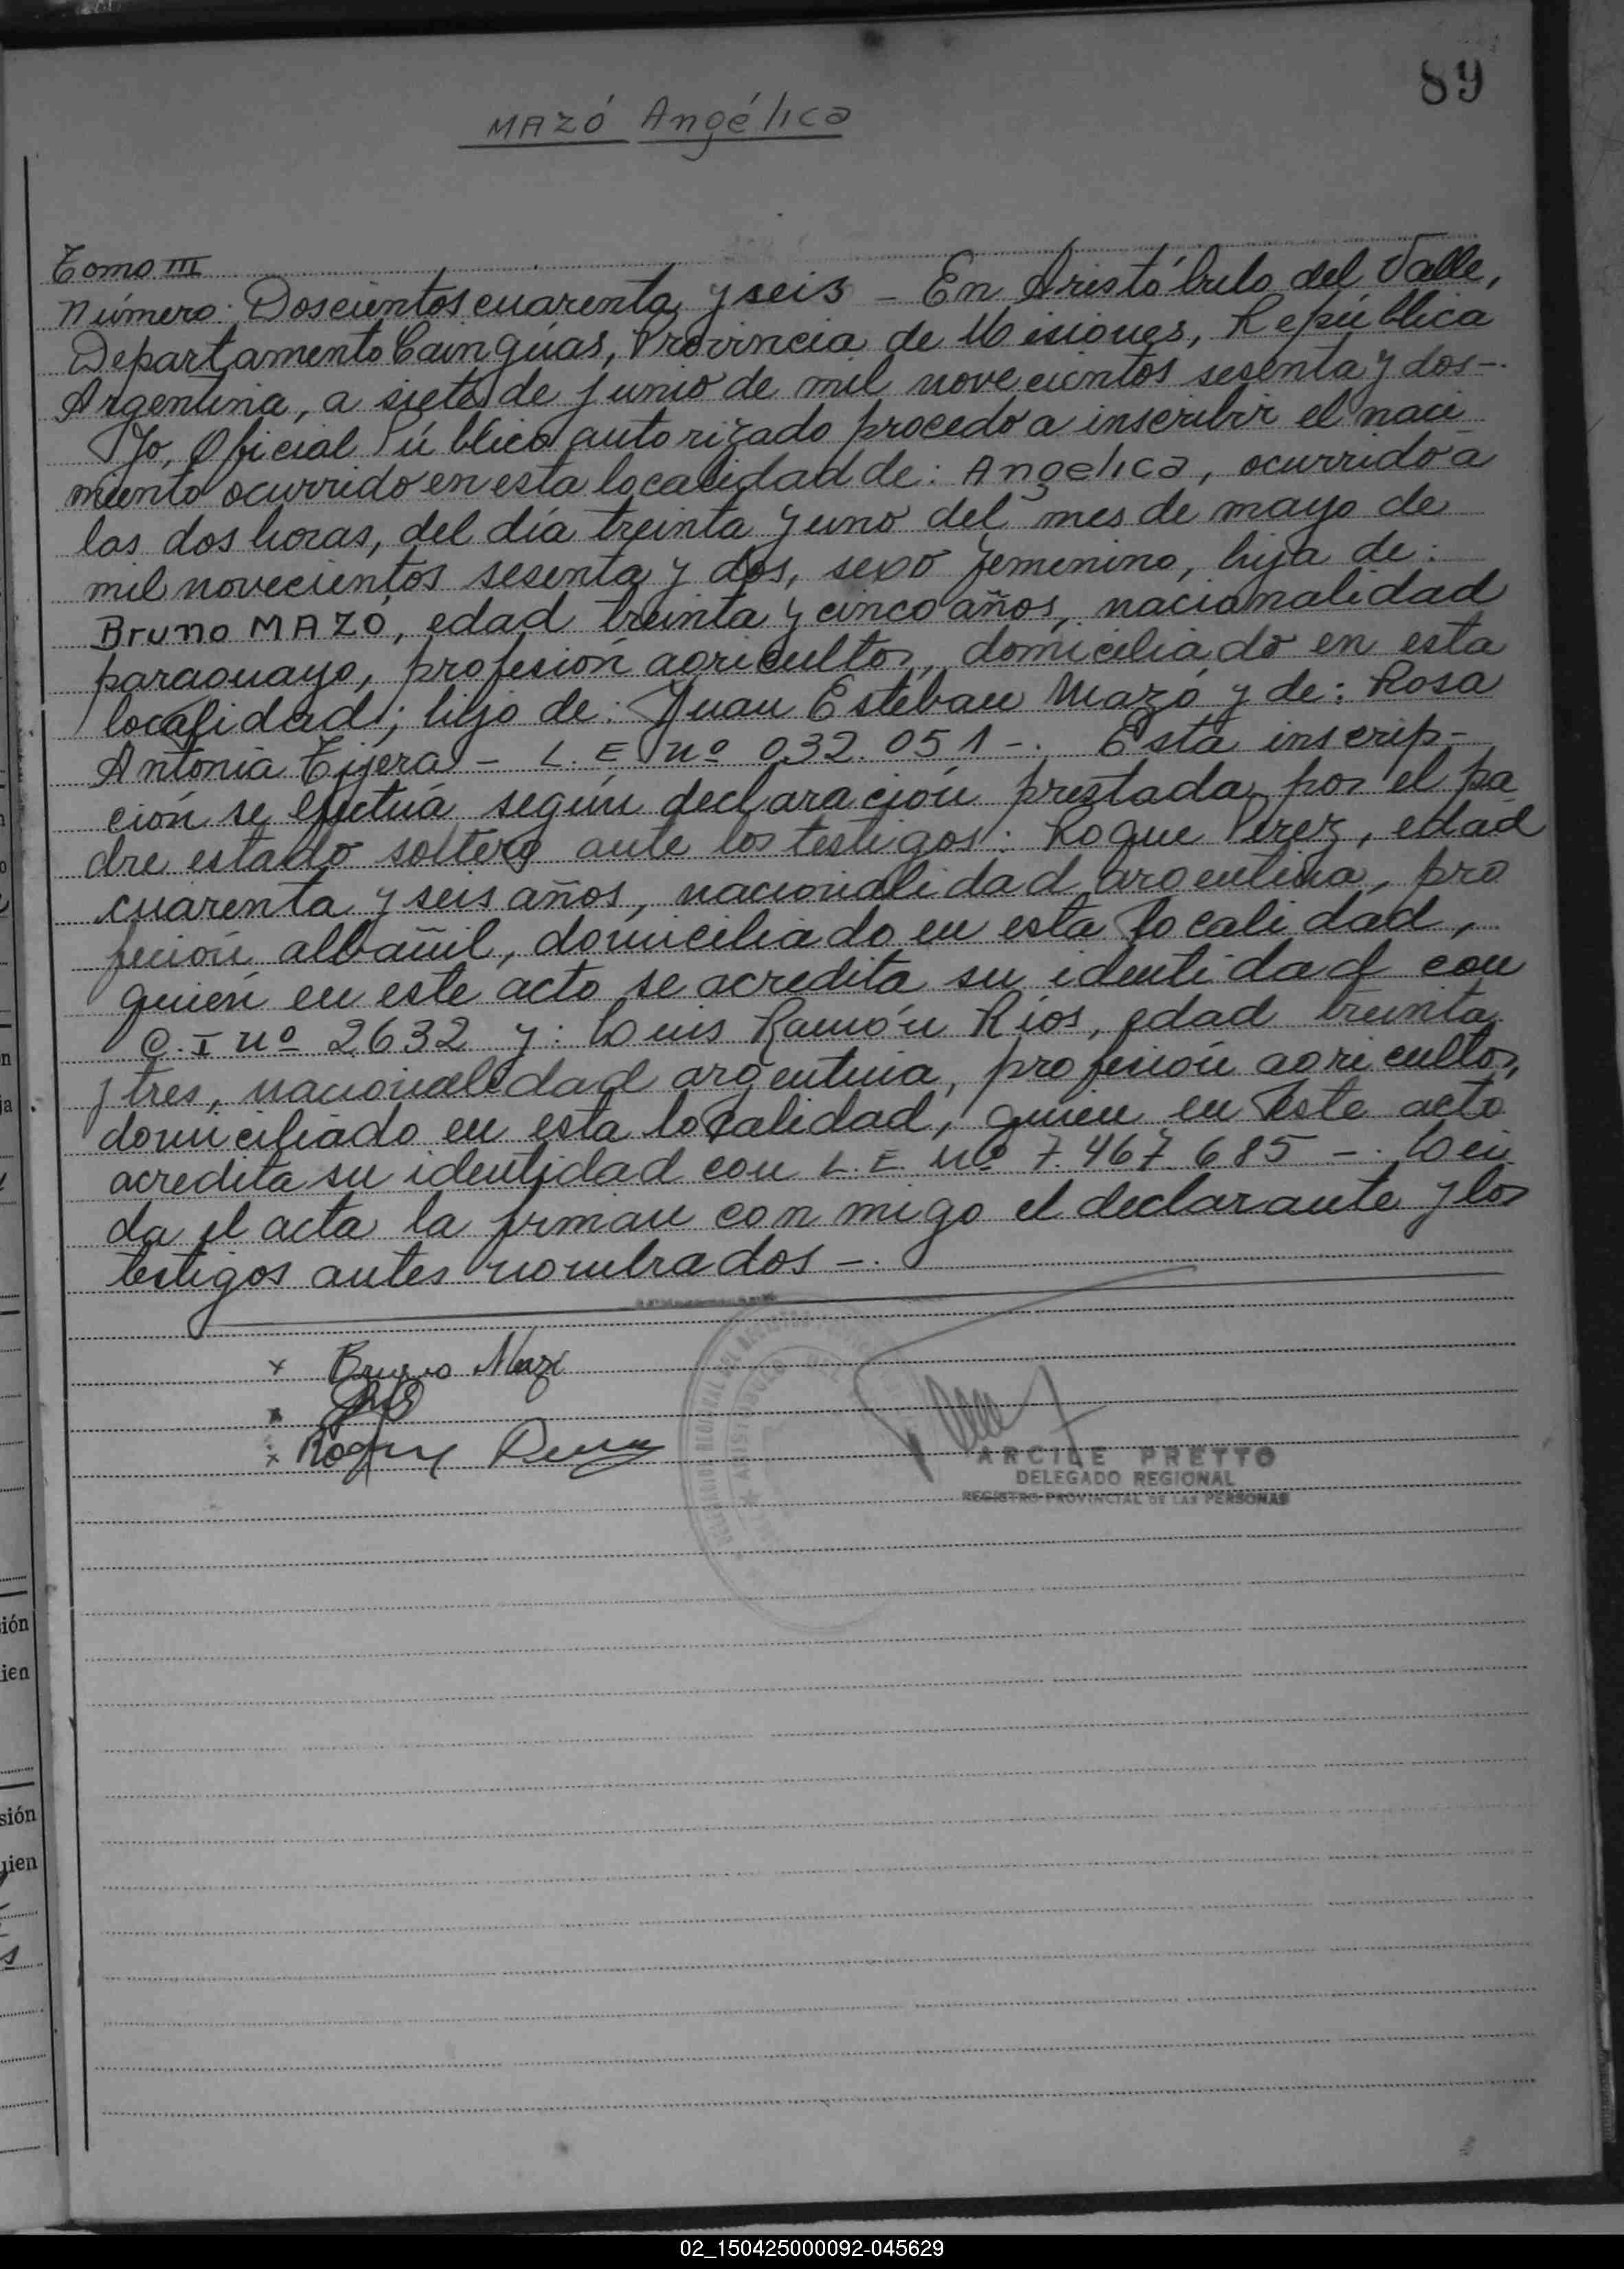 89
MAZÓ Angélica
Tomo III
Número: Doscientos cuarenta y seis - En Aristóbulo del Valle,
Departamento Cainguás, Provincia de Misiones, República
Argentina, a siete de junio de mil novecientos sesenta y dos-.
Yo, Oficial Público autorizado procedo a inscribir el naci
miento ocurrido en esta localidad de: Angelica, ocurrido a
las dos horas, del día treinta y uno del mes de mayo de
mil novecientos sesenta y dos, sexo femenino, hija de:
Bruno MAZÓ, edad treinta y cinco años, nacionalidad
paraguayo, profesión agricultor, domiciliado en esta
localidad; hijo de: Juan Esteban Mazó y de: Rosa
Antonia Tijera - L. E nº 032.051 -. Esta inscrip-
ción se efectúa según declaración prestada por el pa
dre estado soltero ante los testigos: Roque Perez, edad
cuarenta y seis años, nacionalidad argentina, pro
fesión albañil, domiciliado en esta localidad,
quien en este acto se acredita su identidad con
C. I nº 2632 y: Luis Ramón Ríos, edad treinta
y tres, nacionalidad argentina, profesión agricultor,
domiciliado en esta localidad, quien en este acto
acredita su identidad con L. E. nº 7.467.685 -. Leí
da el acta la firman con migo el declarante y los
testigos antes nombrados -.
x Bruno Mazó
x Roque Perez
ARCILE PRETTO
DELEGADO REGIONAL
REGISTRO PROVINCIAL DE LAS PERSONAS
n
ja
sión
ien
sión
uien
02_150425000092-045629